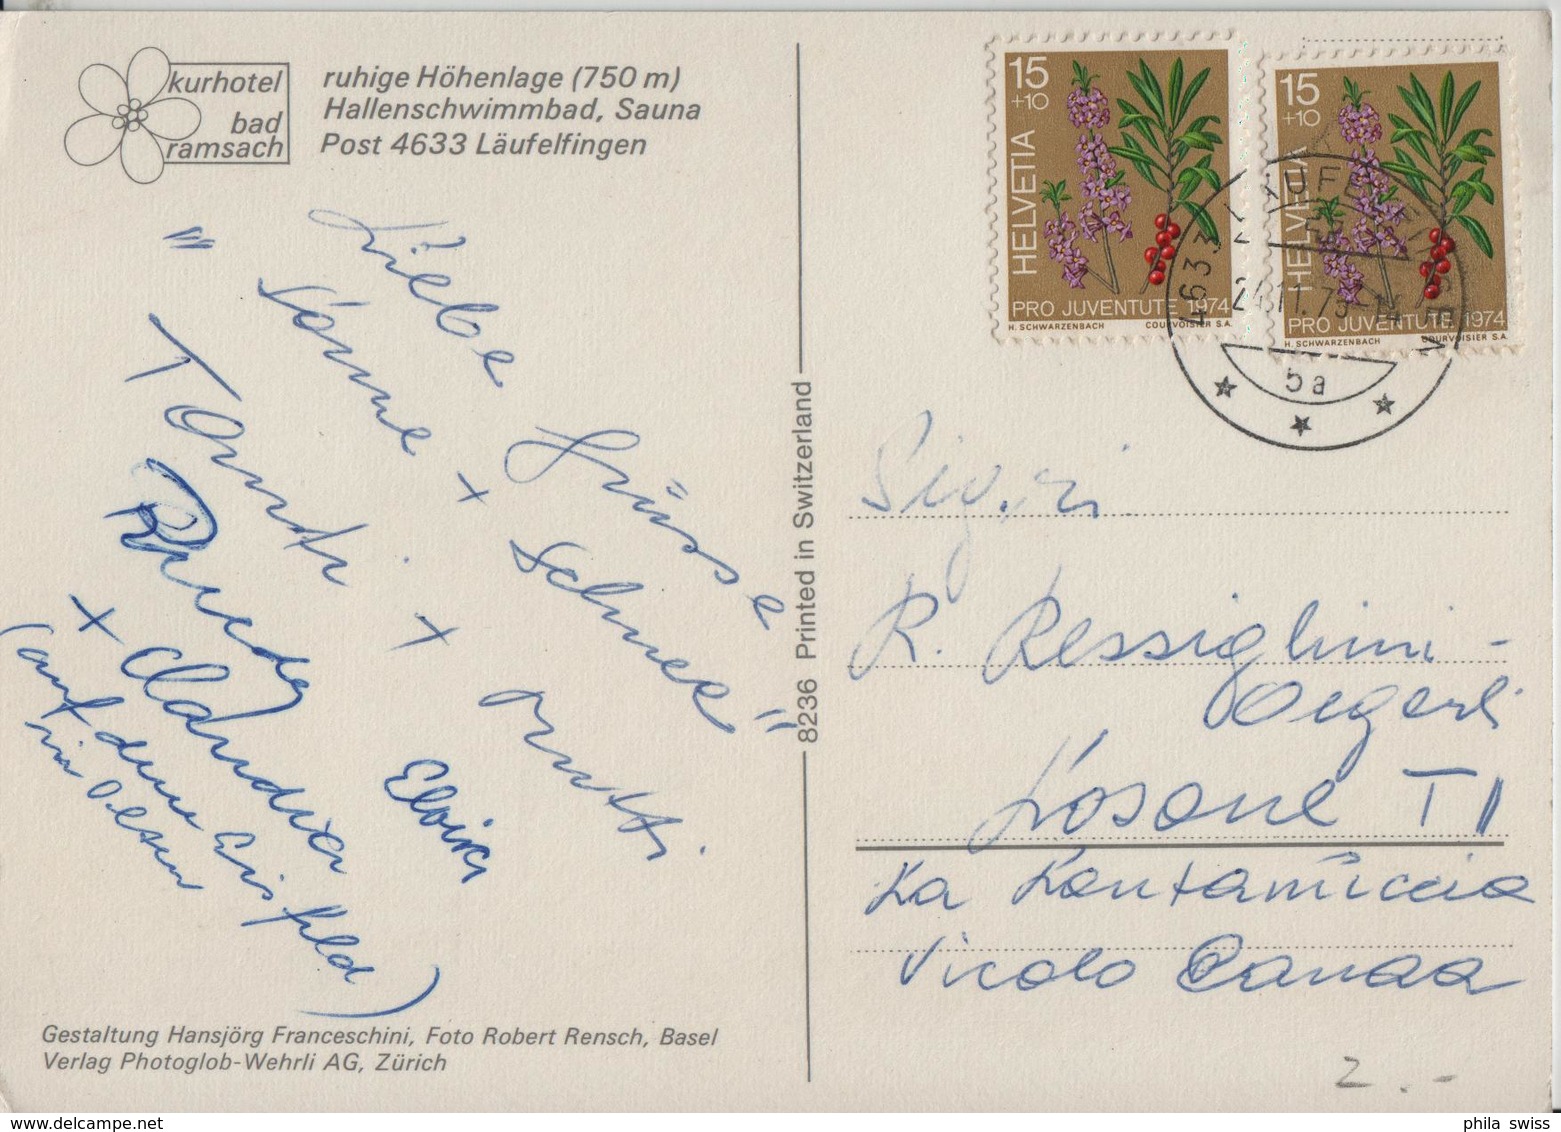 kurhotel
bad
ramsach
ruhige Höhenlage (750 m)
Hallenschwimmbad, Sauna
Post 4633 Läufelfingen
Liebe Grüsse
"Sonne + Schnee"
+ Mutti.
Elvira
+ Claudia
(auf dem Eisfeld
in Olten)
Gestaltung Hansjörg Franceschini, Foto Robert Rensch, Basel
Verlag Photoglob-Wehrli AG, Zürich
8236 Printed in Switzerland
15
+10
HELVETIA
PRO JUVENTUTE 1974
H. SCHWARZENBACH COURVOISIER S.A.
15
+10
HELVETIA
PRO JUVENTUTE 1974
H. SCHWARZENBACH COURVOISIER S.A.
4633 LÄUFELFINGEN
24.11.75-14
5a
Sig.ri
R. Ressiglini -
Oegerli
Losone TI
La Contamuccia
Vicolo Canaa
2.-
phila swiss